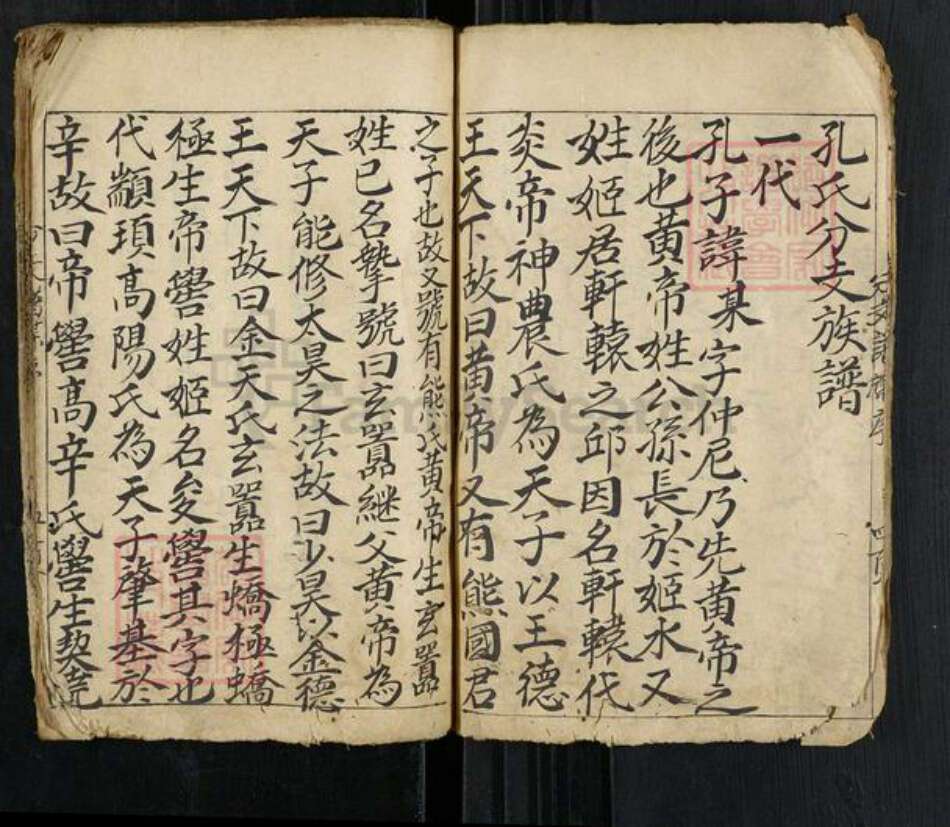 孔氏分支族譜
一代
孔子諱某字仲尼乃先黃帝之
後也黃帝姓公孫長於姬水又
姓姬居軒轅之邱因名軒轅代
炎帝神農氏為天子以王德
王天下故曰黃帝又有熊國君
之子也故又號有熊氏黃帝生玄囂
姓已名摯號曰玄囂継父黃帝為
天子能修太昊之法故曰少昊以金德
王天下故曰金天氏玄囂生蟜極蟜
極生帝嚳姓姬名夋嚳其字也
代顓頊高陽氏為天子肇基於
辛故曰帝嚳高辛氏嚳生契堯
FamilySearch